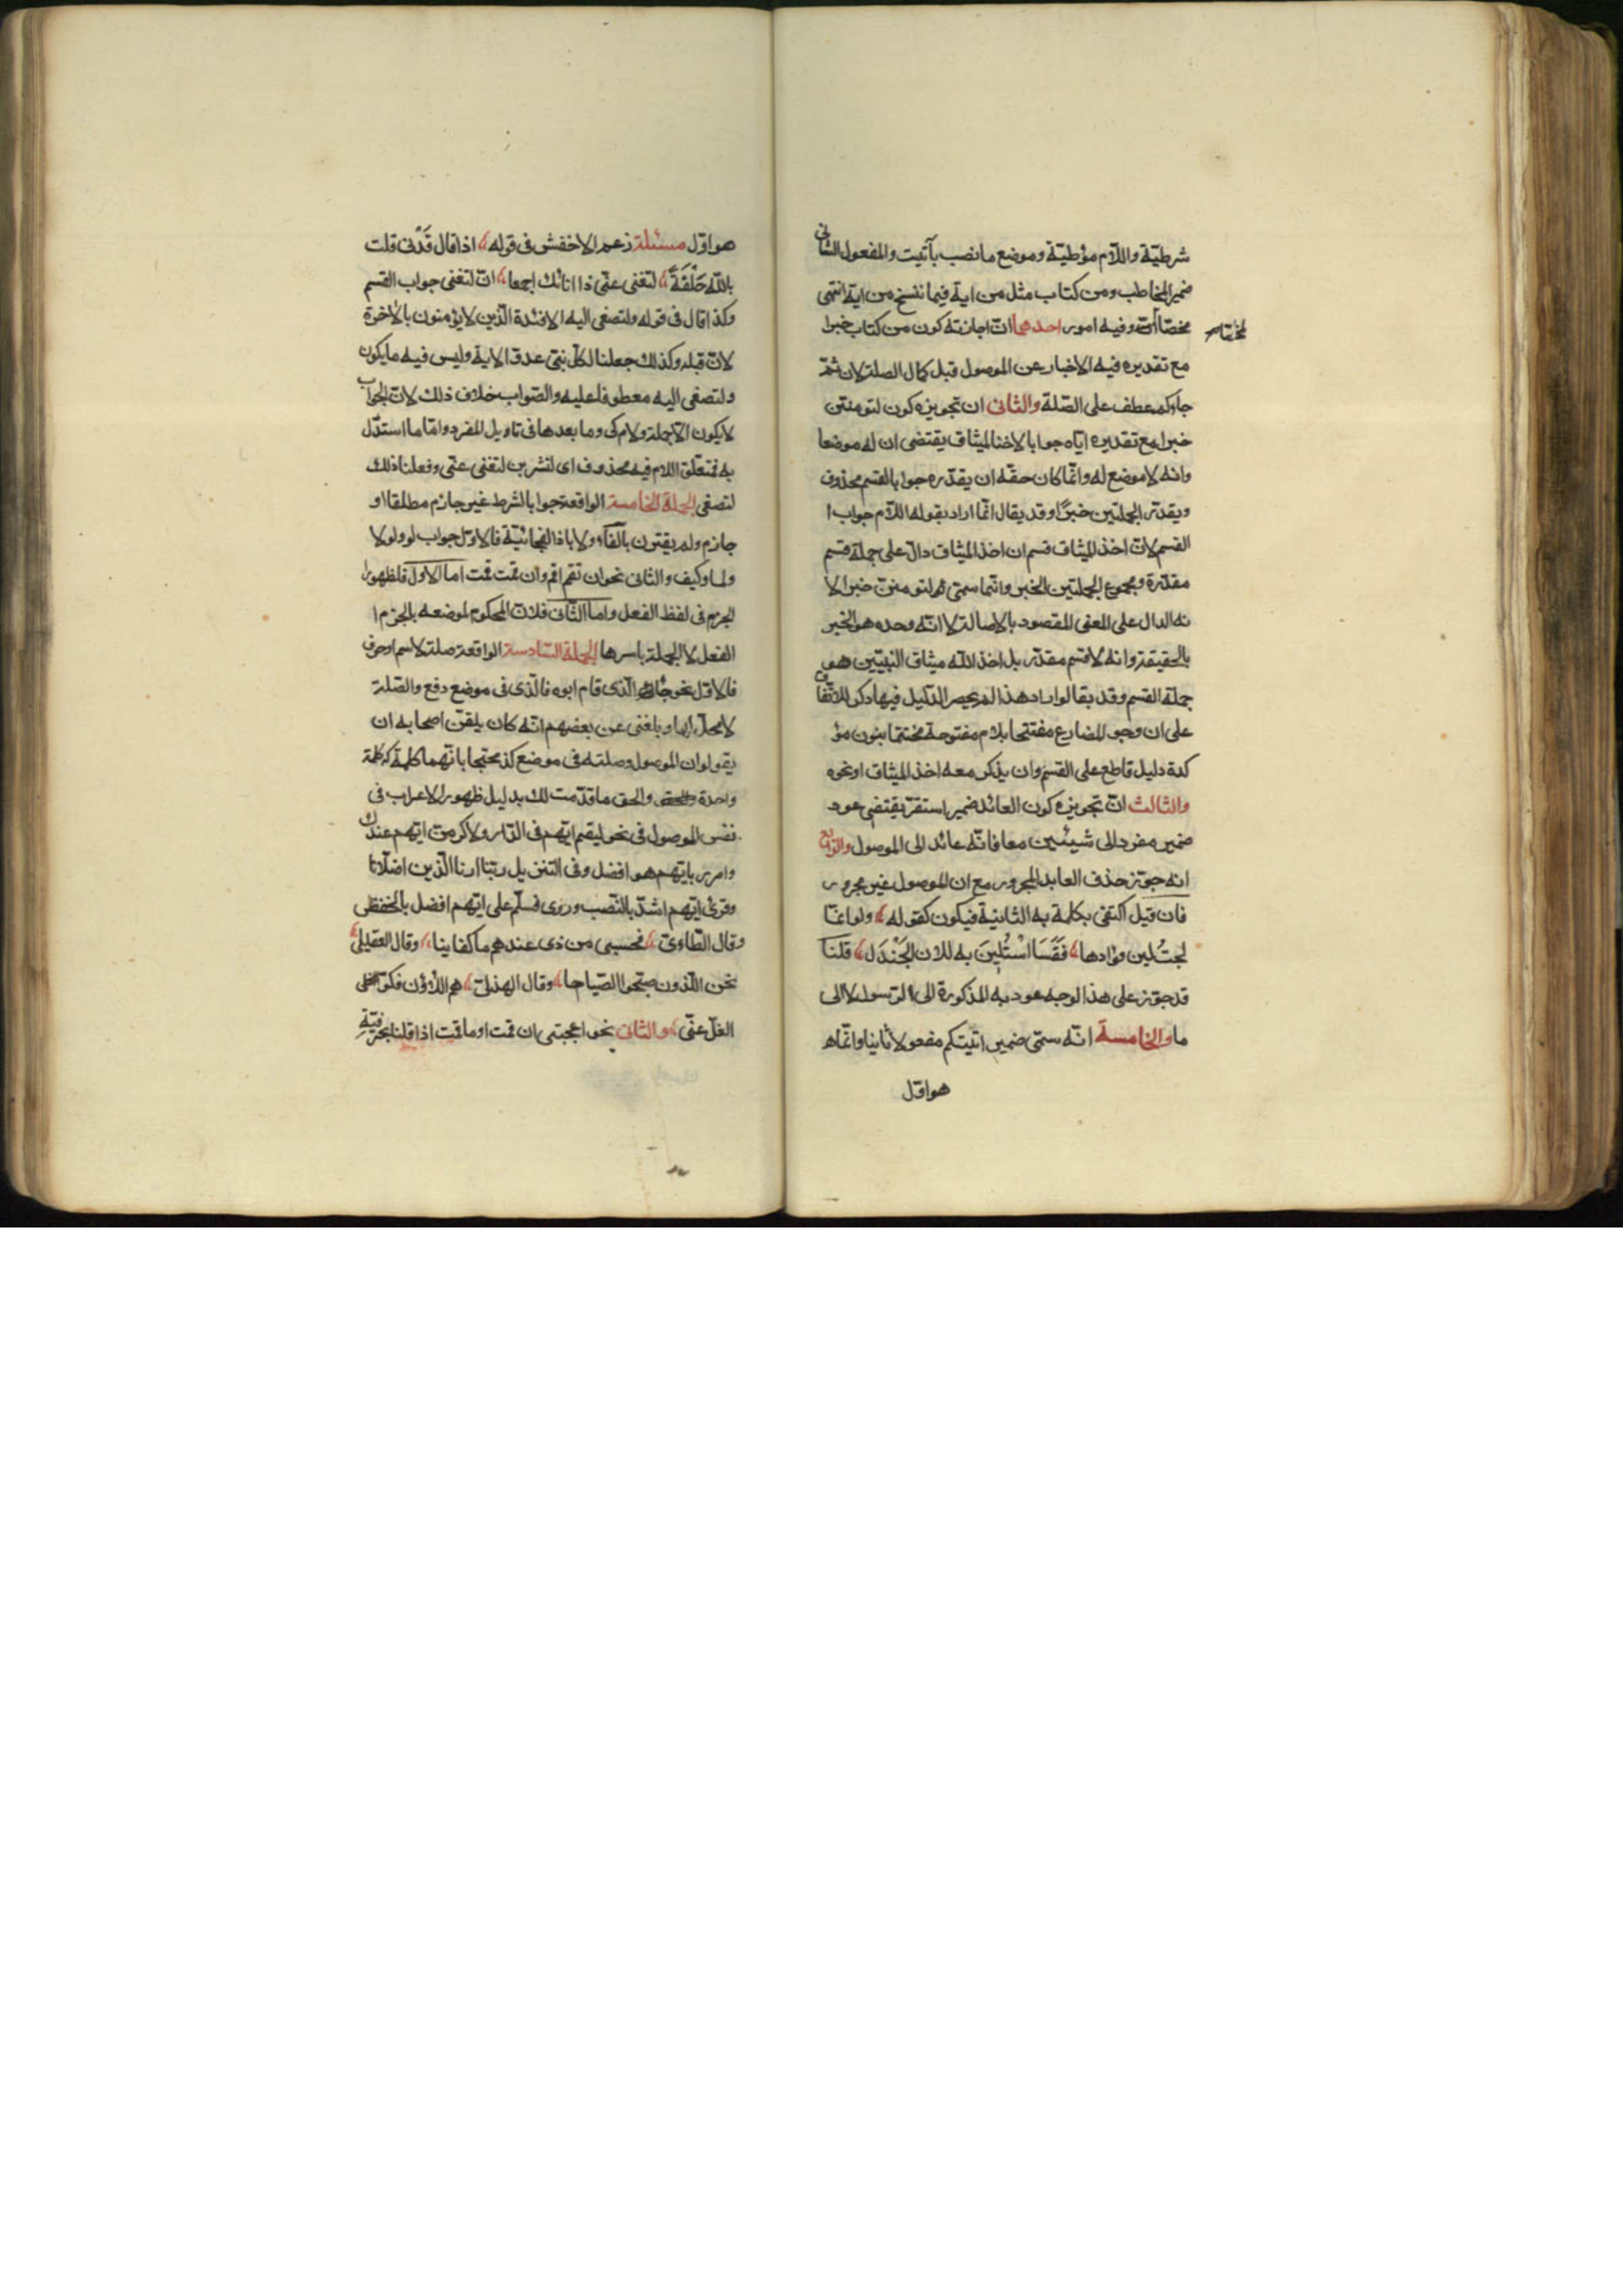 شرطيّة واللّام مؤطيّة وموضع ما نصب بآتيت والمفعول الثانى
ضمير المخاطب ومن كتاب مثل من اية فيما ننسخ من اية انتهى
مخصّا وفيه امور احدها انّ اجازته كون من كتاب خبرا
مع تقديره فيه الاخبار عن الموصول قبل كمال الصلة لان ثمّ
جاءكم عطف على الصّلة والثانى ان تجويزه كون لتومننّ
خبرا مع تقديره ايّاه جوابا لاخذ الميثاق يقتضى ان له موضعا
وانه لا موضع له وانّما كان حقّه ان يقدّره جوابا لقسم محذوف
ويقدّر الجملتين خبرًا وقد يقال انّما اراد بقوله اللّام جواب ا
القسم لانّ اخذ الميثاق قسم ان اخذ الميثاق دالّ على جملة قسم
مقدّرة ومجموع الجملتين الخبر وانّما سمّى لتومننّ خبرا لا
نه الدال على المعنى المقصود بالاصالة لا انّه وحده هو الخبر
بالحقيقة وانه لا قسم مقدّر بل اخذ اللّه ميثاق النبيّين هو
جملة القسم وقد يقال لو اراد هذا لم يحصر الدّليل فيما ذكر للاتّفاق
على ان وجود المضارع مفتتحا بلام مفتوحة مختتما بنون مؤ
كدة دليل قاطع على القسم وان يذكر معه اخذ الميثاق او نحوه
والثالث انّ تجويزه كون العائد ضمير استقرّ يقتضى عود
ضمير مفرد الى شيئين معا فانّه عائد الى الموصول والرّابع
انه جوّز حذف العايد المجرور مع ان الموصول غير مجرور
فان قيل اكتفى بكلمة به الثانية فيكون كقوله ولو انّما
لجتُلين فؤادها فَقَسَا اسْتُلِينَ به للان الجَنْدَل قلنا
قد جوّز على هذا الوجه عود به المذكورة الى الرّسول لا الى
ما والخامسة انّه سمّى ضمير اتيتكم مفعولا ثانيا وانّما ه
هو اوّل
هو اوّل مسئلة زعم الاخفش فى قوله اذا قال قَدْنى قلت
باللّه حَلْفَةً لتغنى عنّى ذا انائك اجمعا انّ لتغنى جواب القسم
وكذا قال فى قوله ولتصغى اليه الافئدة الّذين لا يؤمنون بالاخرة
لانّ قبله وكذلك جعلنا لكلّ نبىّ عدوّا الاية وليس فيه ما يكون
ولتصغى اليه معطوفا عليه والصّواب خلاف ذلك لانّ الجواب
لا يكون الّا جملة ولام كى وما بعدها فى تاويل المفرد وامّا ما استدلّ
به فمتعلّق اللام فيه محذوف اى لتشربن لتغنى عنّى وفعلنا ذلك
لتصغى الجملة الخامسة الواقعة جوابا لشرط غير جازم مطلقا او
جازم ولم يقترن بالفآء ولا باذا الفجائيّة فالاوّل جواب لو ولولا
ولما وكيف والثانى نحو ان تقم اقم وان قمت قمت اما الاول فلظهور
الجزم فى لفظ الفعل واما الثّانى فلانّ المحكوم لموضعه بالجزم ا
الفعل لا الجملة باسرها الجملة السّادسة الواقعة صلة لاسم او حرف
فالاوّل نحو جاء الّذى قام ابوه فالّذى فى موضع رفع والصّلة
لا محلّ لها وبلغنى عن بعضهم انّه كان يلقّن اصحابه ان
يقولوا ان الموصول وصلته فى موضع كذا محتجا بانّهما كلمة كلمة
واحدة والحق ما قدّمت لك بدليل ظهور الاعراب فى
نفس الموصول فى نحو ليقم ايّهم فى الدّار ولاكرمنّ ايّهم عندك
وامرر بايّهم هو افضل وفى التنزيل ربّنا ارنا الّذين اضلّانا
وقرئ ايّهم اشدّ بالنّصب وروى فسلّم على ايّهم افضل بالخفض
وقال الطّاوىّ فحسبى من ذى عندهم ما كفانيا وقال العقيلى
نحن اللّذون صبّحوا الصّباحا وقال الهذلىّ هم اللّاؤن فكّوا
الغلّ عنّى والثانى نحو اعجبتنى ان قمت او ما قمت اذا قلنا بحرفيّة